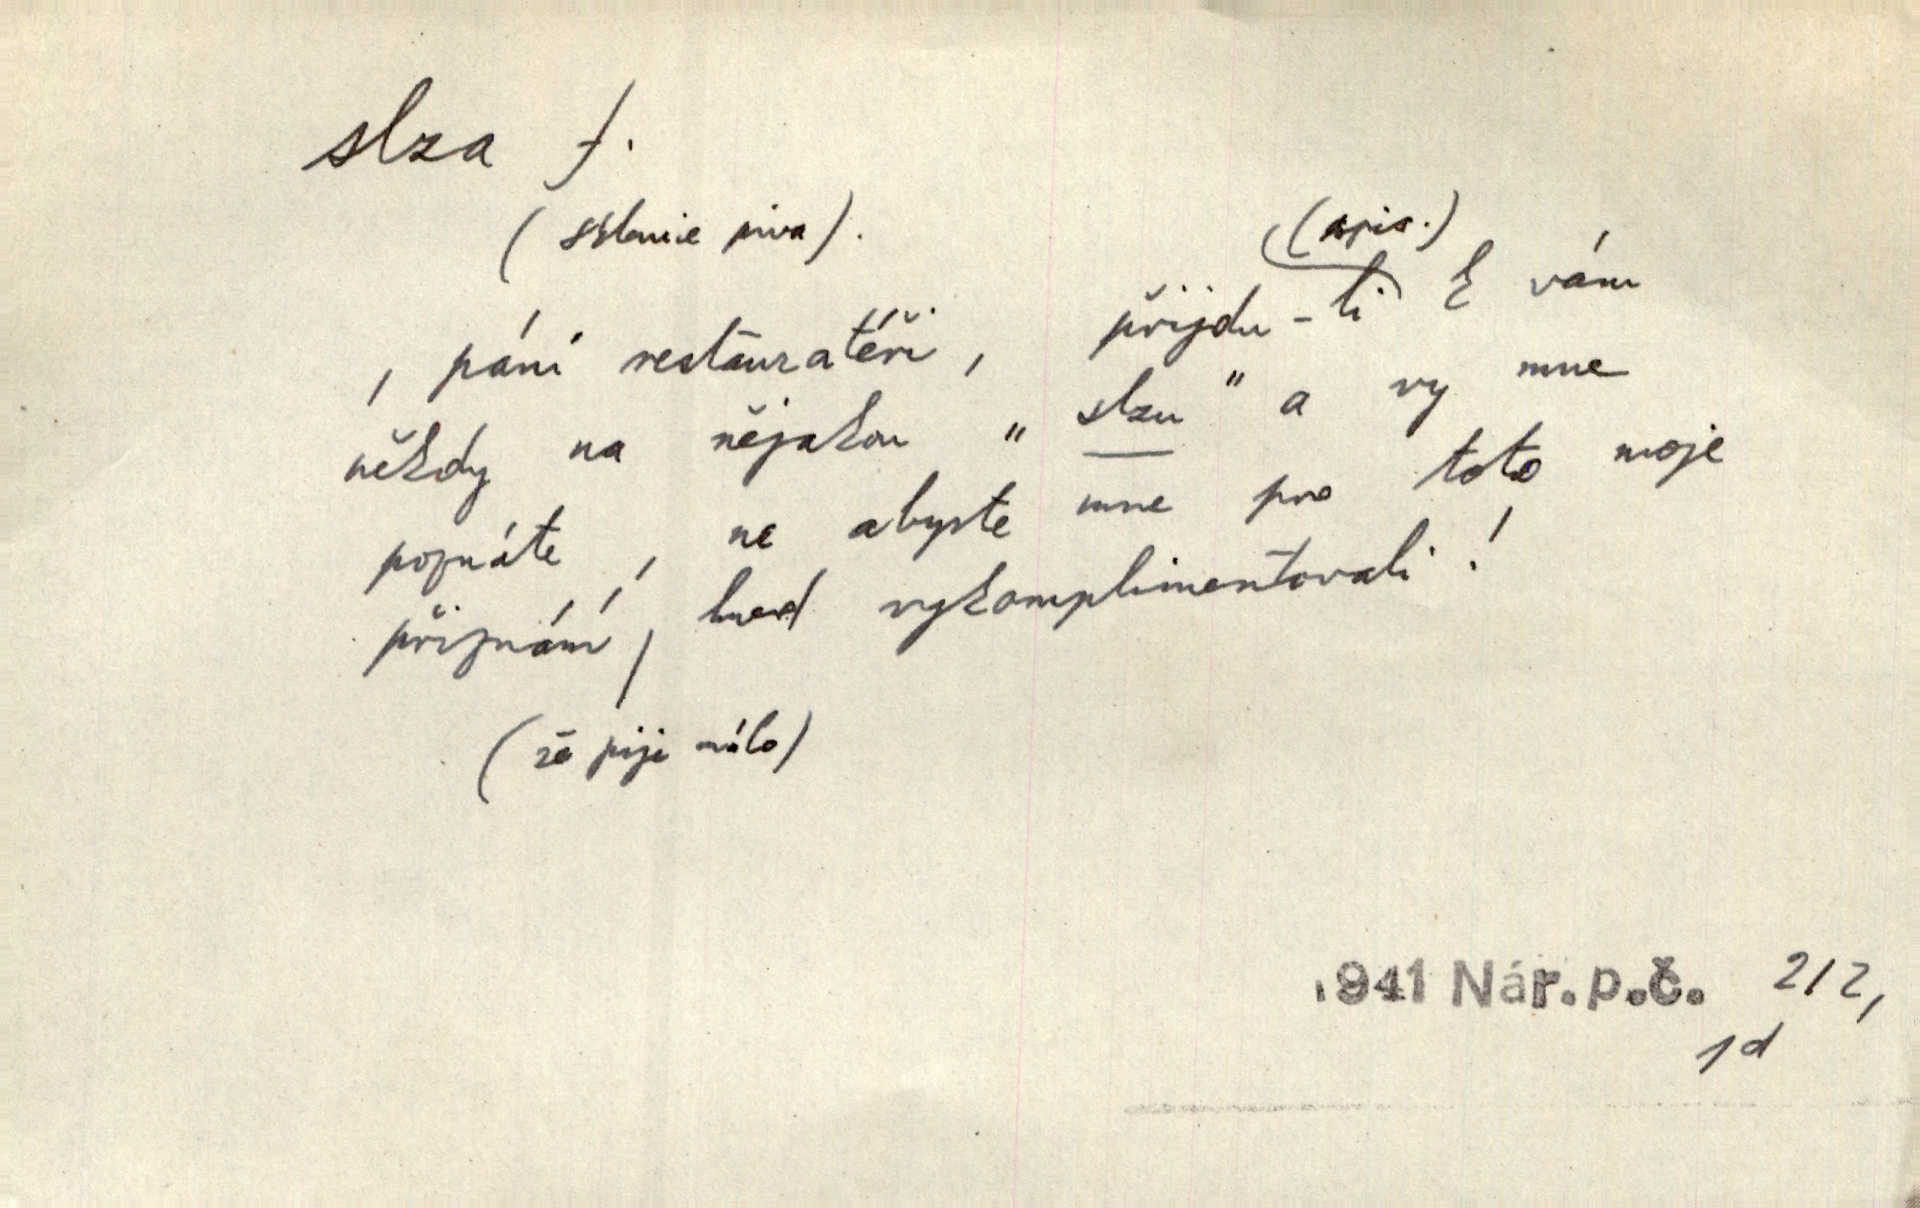 slza f.
(sklenice piva).
(spis.)
, pání restauratéři, přijdu-li k vám
někdy na nějakou „slzu" a vy mne
poznáte, ne abyste mne pro toto moje
přiznání, hned vykomplimentovali!
(že piji málo)
1941 Nár.p.č. 212,
1d